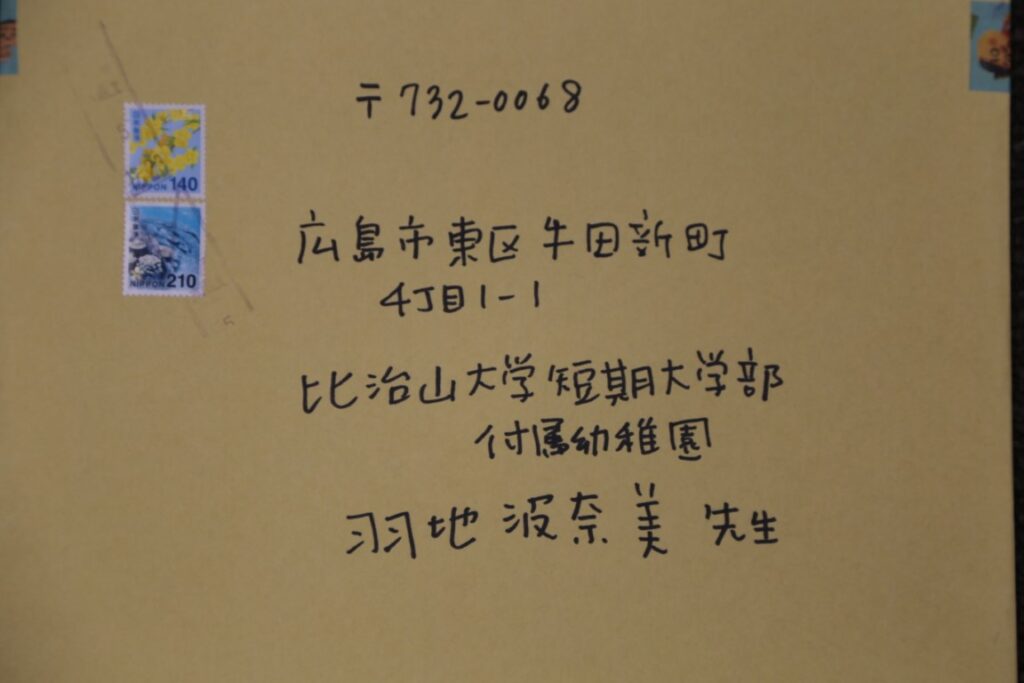 〒732-0068
日本郵便
NIPPON 140
日本郵便
NIPPON 210
広島市東区牛田新町
4丁目1-1
比治山大学短期大学部
付属幼稚園
羽地 波奈美 先生